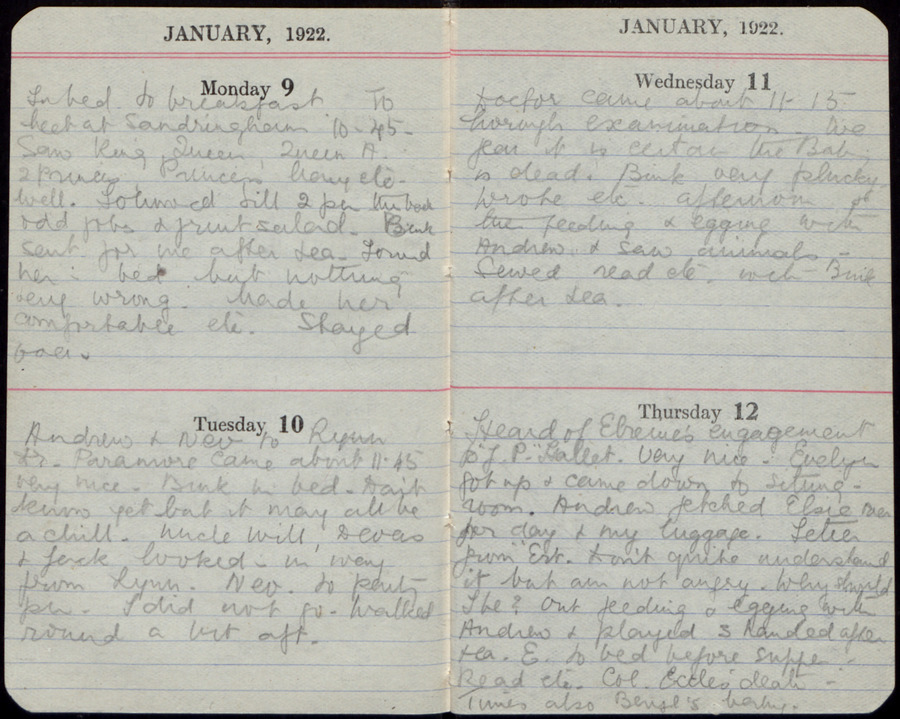 JANUARY, 1922.
Monday 9
In bed to breakfast To
meet at Sandringham 10-45-
Saw King, Queen, Queen A.
2 Princes, Princess Mary etc.
well. Followed till 2 pm
odd jobs & fruit salad. Bink
sent for me after tea. Found
her in bed but nothing
very wrong. Made her
comfortable etc. Stayed
over.
Tuesday 10
Andrew & Nev to Lynn
Dr. Paramore came about 11-45
very nice. Bink in bed. Don't
know yet but it may all be
a chill. Uncle Will, Devas
& Jack looked in on way
from Lynn. Nev. to
I did not go. Walked
round a bit aft.
JANUARY, 1922.
Wednesday 11
Doctor came about 11-15
Thorough examination. We
fear it is certain the Baby
is dead. Bink very plucky.
Wrote etc. afternoon
the feeding & egging with
Andrew & saw animals.
Sewed read etc. with Bink
after tea.
Thursday 12
Heard of engagement
to J. P. Hallet. Very nice. Evelyn
got up & came down to sitting-
room. Andrew fetched Elsie over
for day & my luggage. Letter
from Est. Don't quite understand
it but am not angry. Why should
I be? Out feeding & egging with
Andrew & played 3 handed after
tea. E. to bed before supper.
Read etc. Col. Eccles death -
Times also baby.